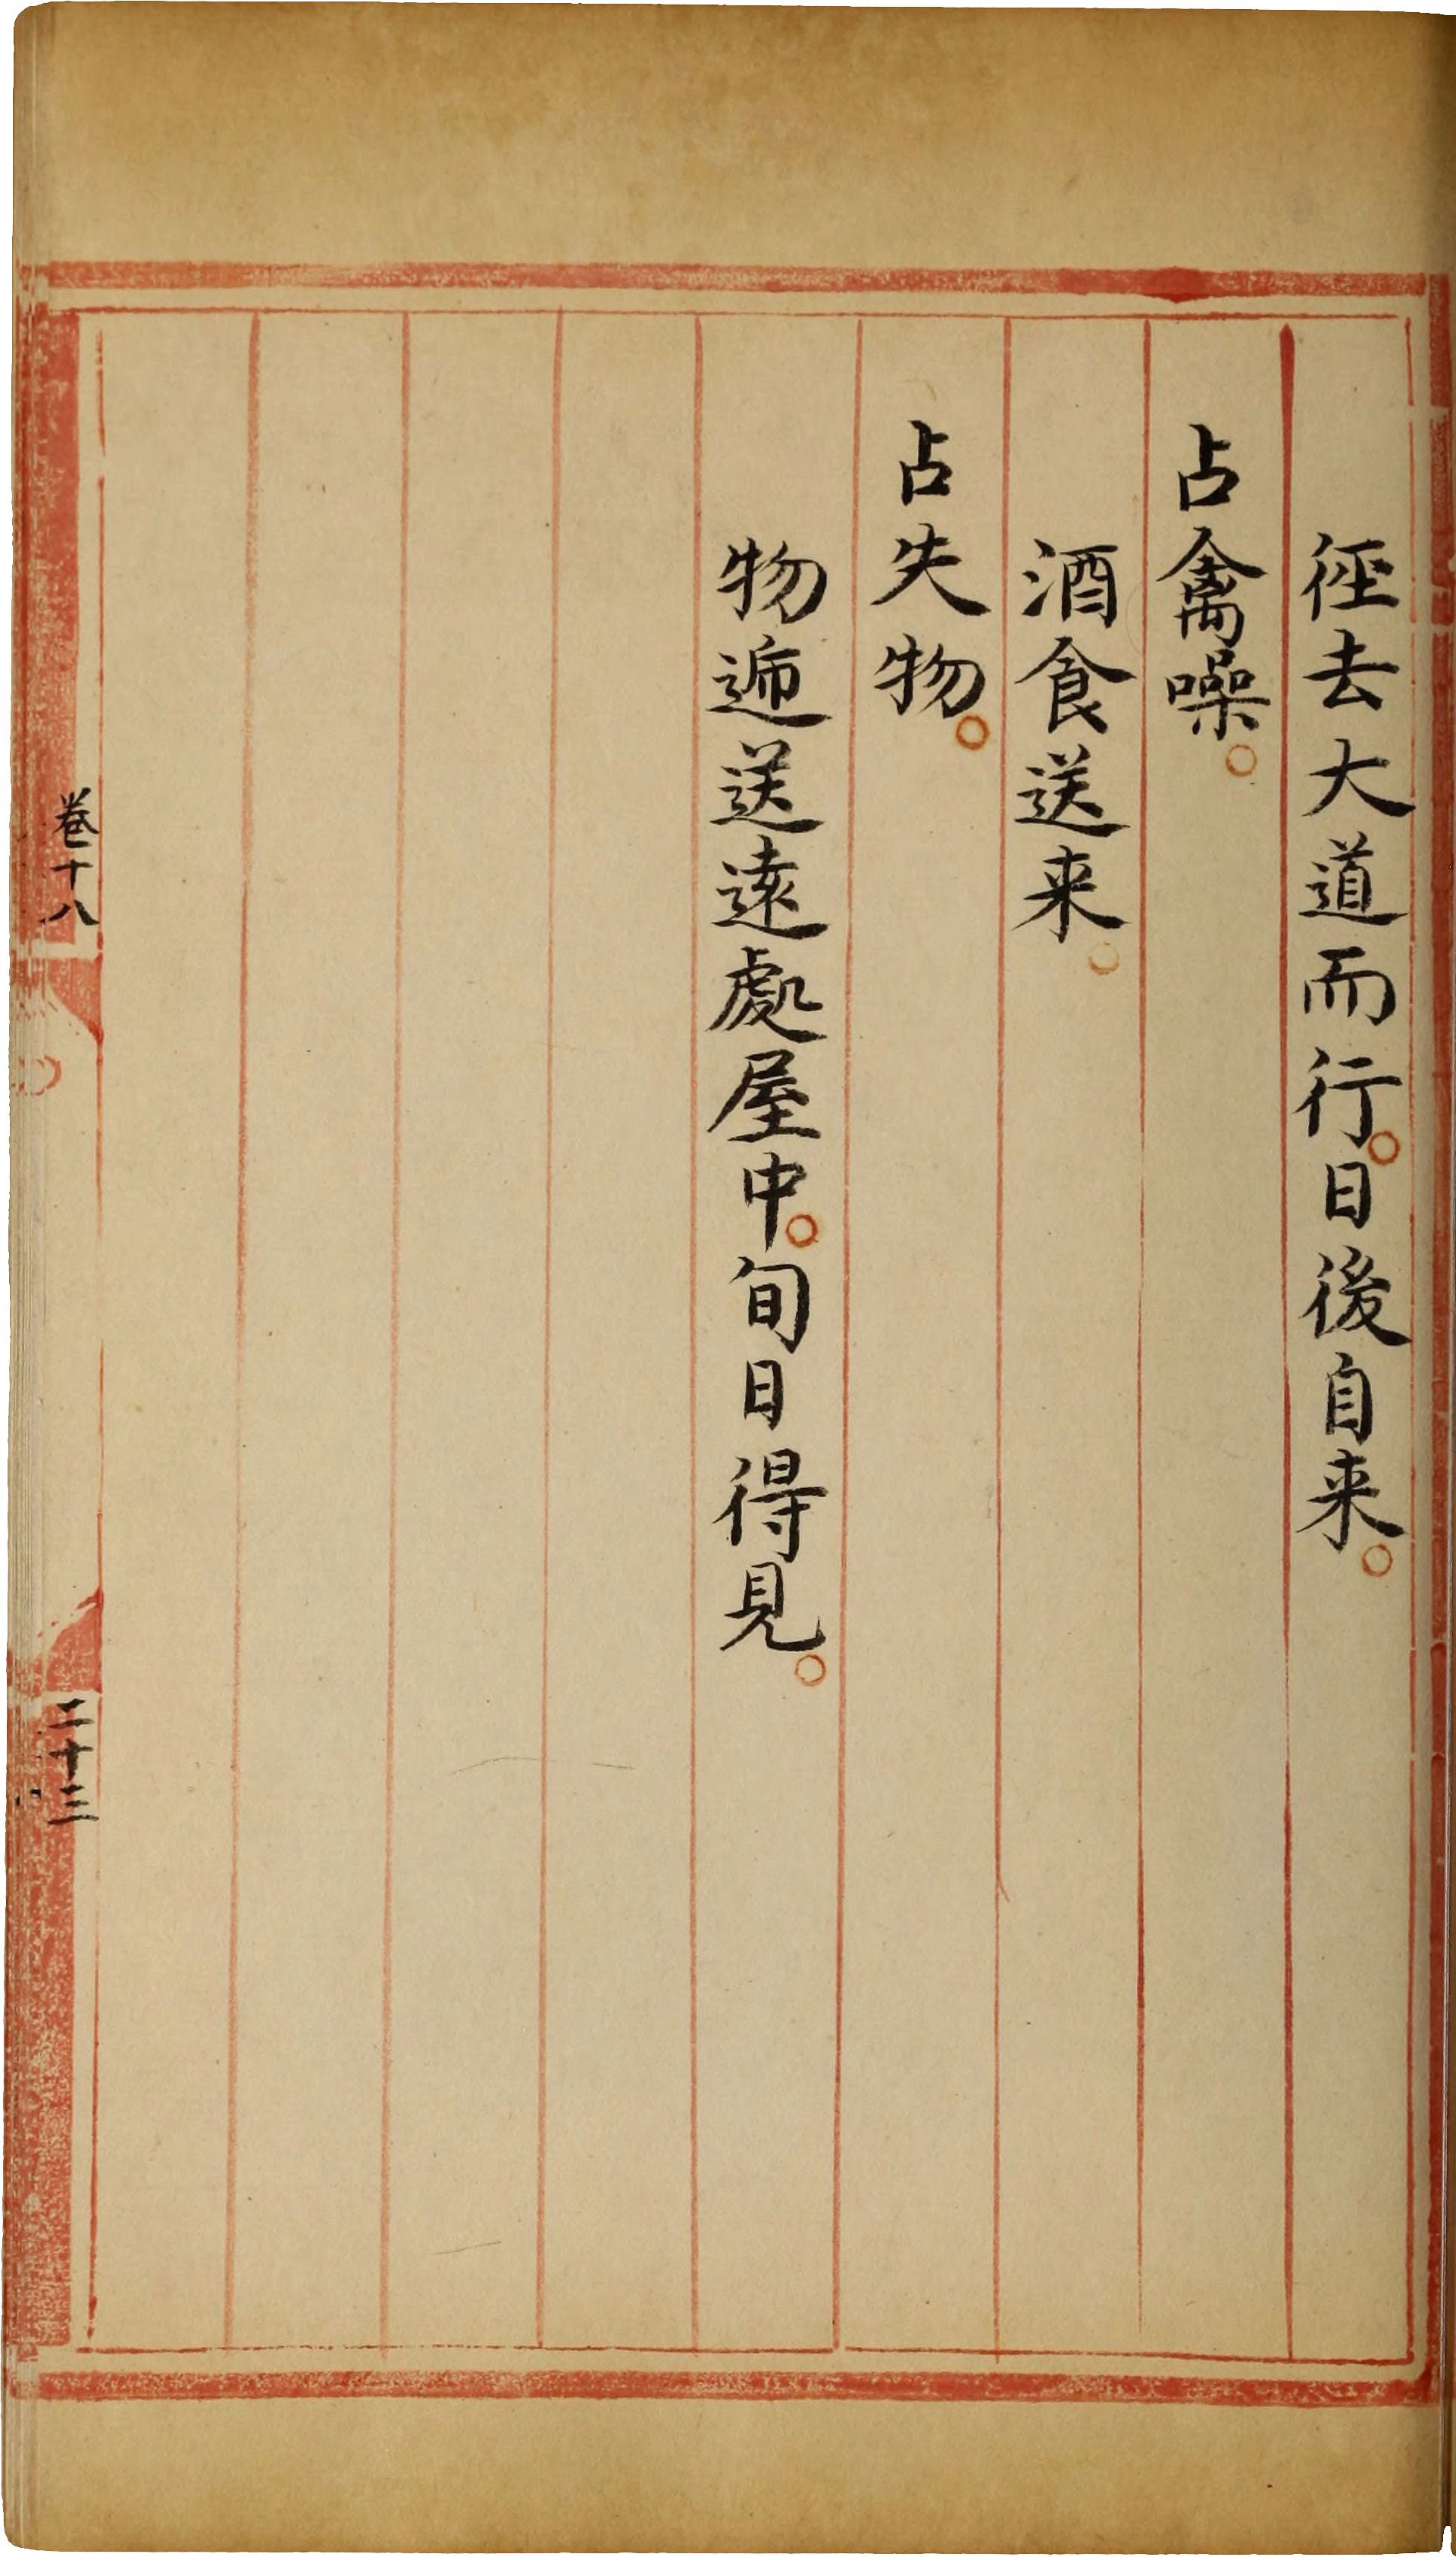 徑去大道而行。日後自来。
占禽噪。
酒食送来。
占失物。
物遞送遠處屋中。旬日得見。
卷十八
二十三